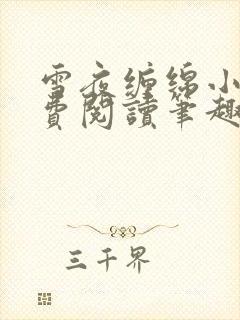 雪夜缠绵小
费阅读笔趣
三千界